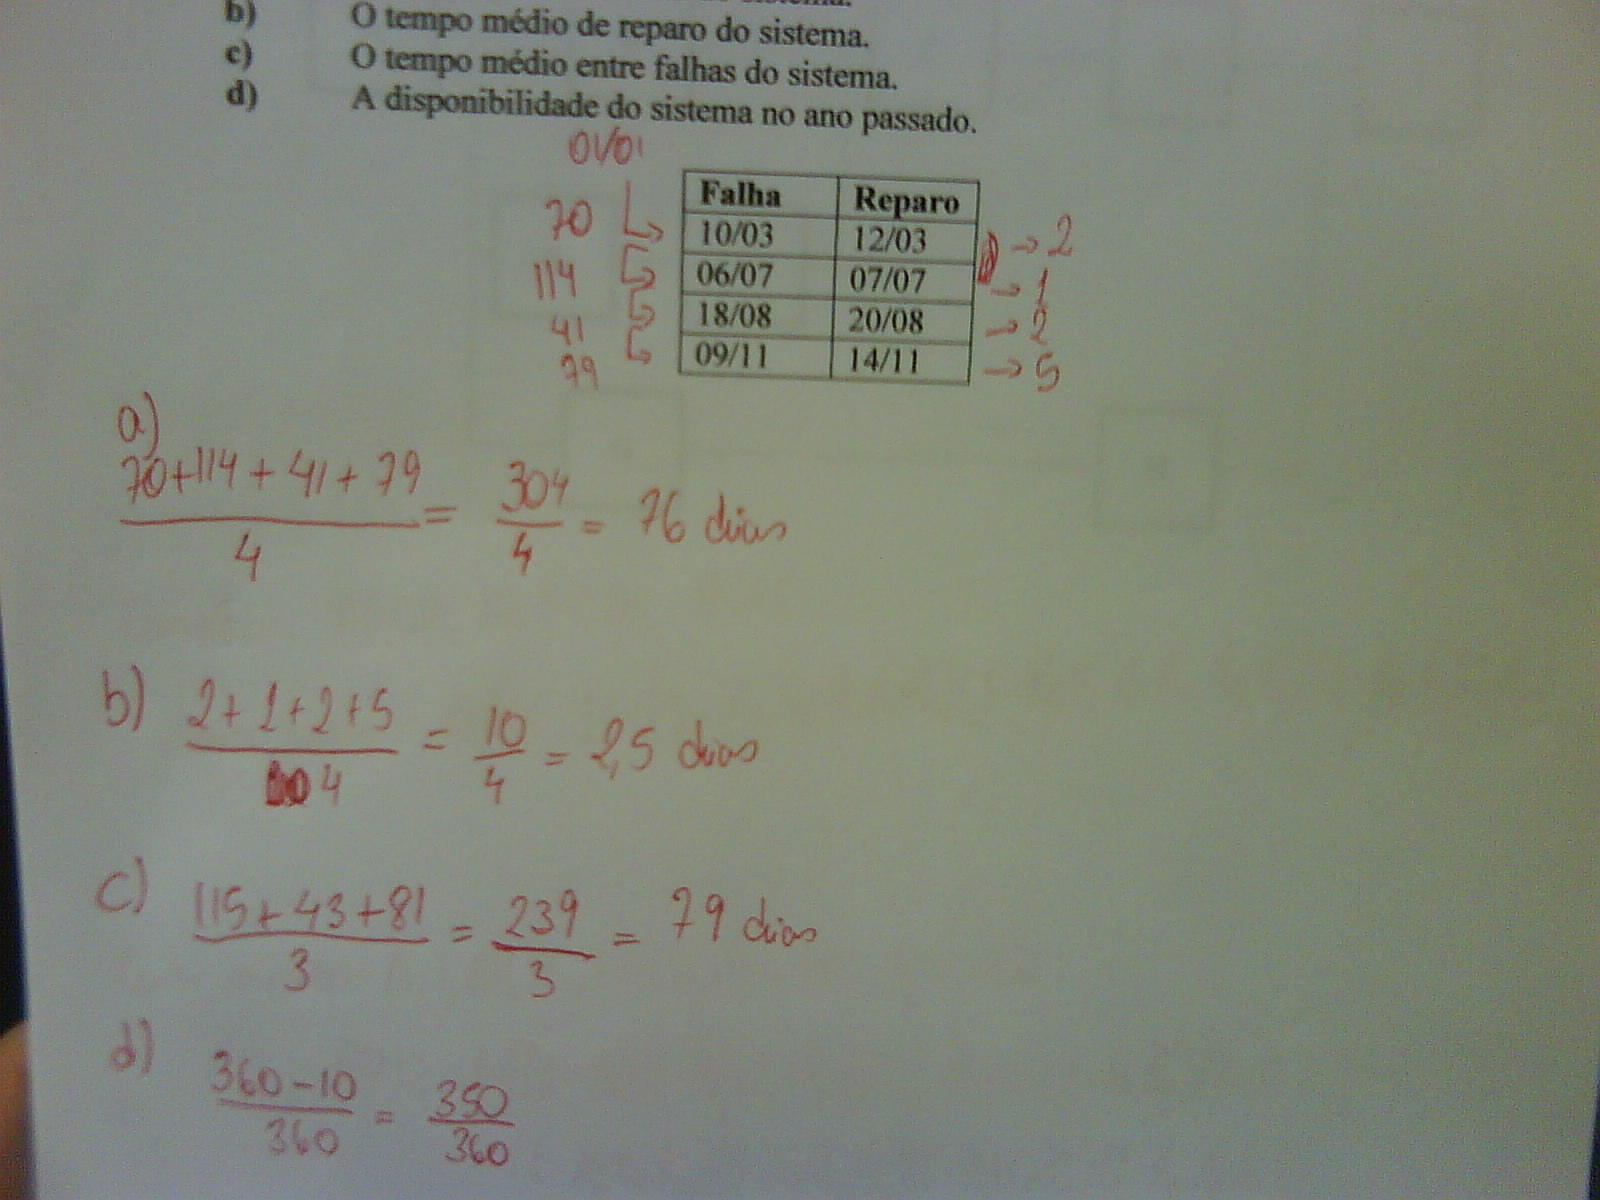 b) O tempo médio de reparo do sistema.
c) O tempo médio entre falhas do sistema.
d) A disponibilidade do sistema no ano passado.
01/01
Falha Reparo
70 10/03 12/03 → 2
114 06/07 07/07 → 1
41 18/08 20/08 → 2
79 09/11 14/11 → 5
a)
70+114+41+79 / 4 = 304 / 4 = 76 dias
b) 2+1+2+5 / 4 = 10 / 4 = 2,5 dias
c) 115+43+81 / 3 = 239 / 3 = 79 dias
d) 360-10 / 360 = 350 / 360